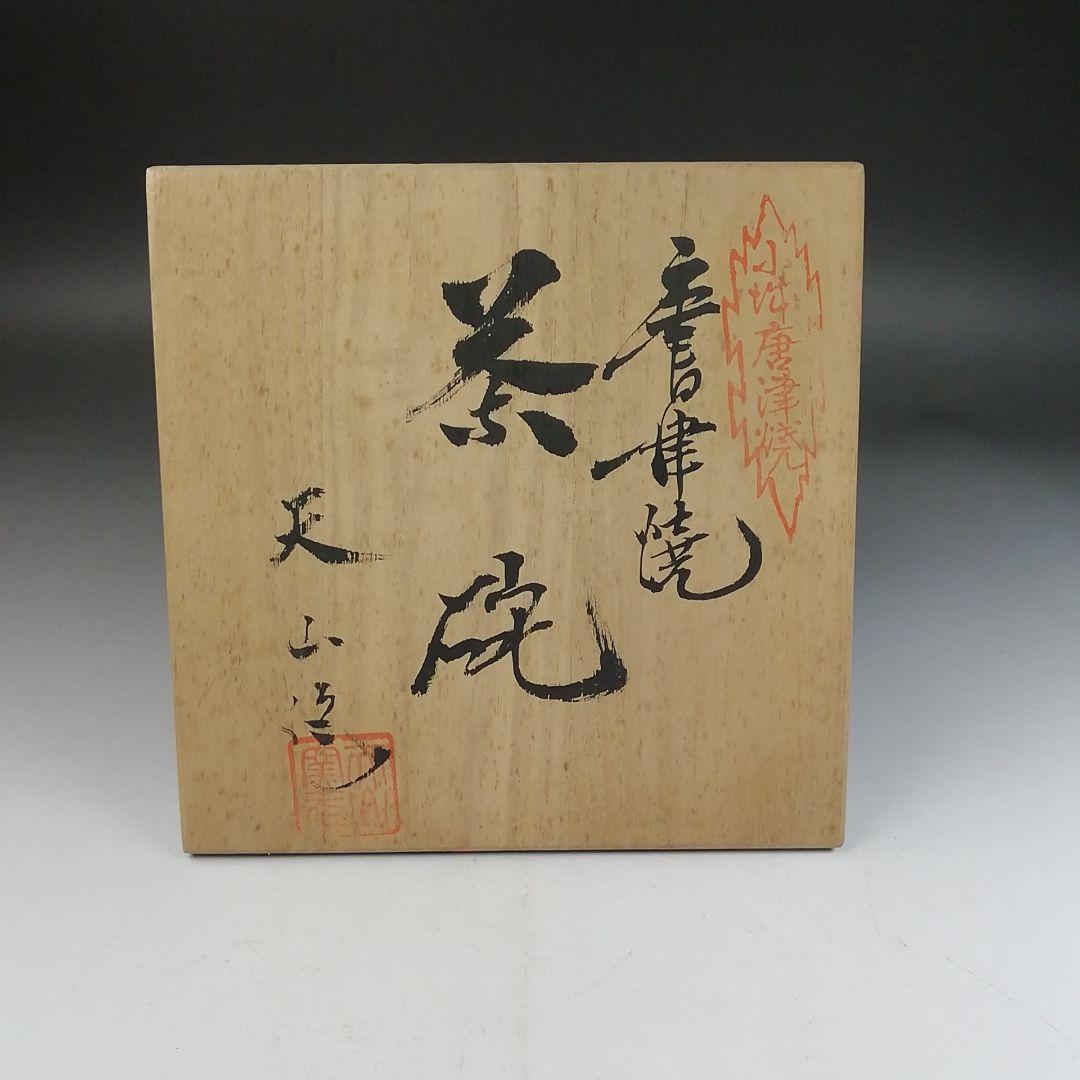 小城唐津焼
唐津焼
茶碗
天山造